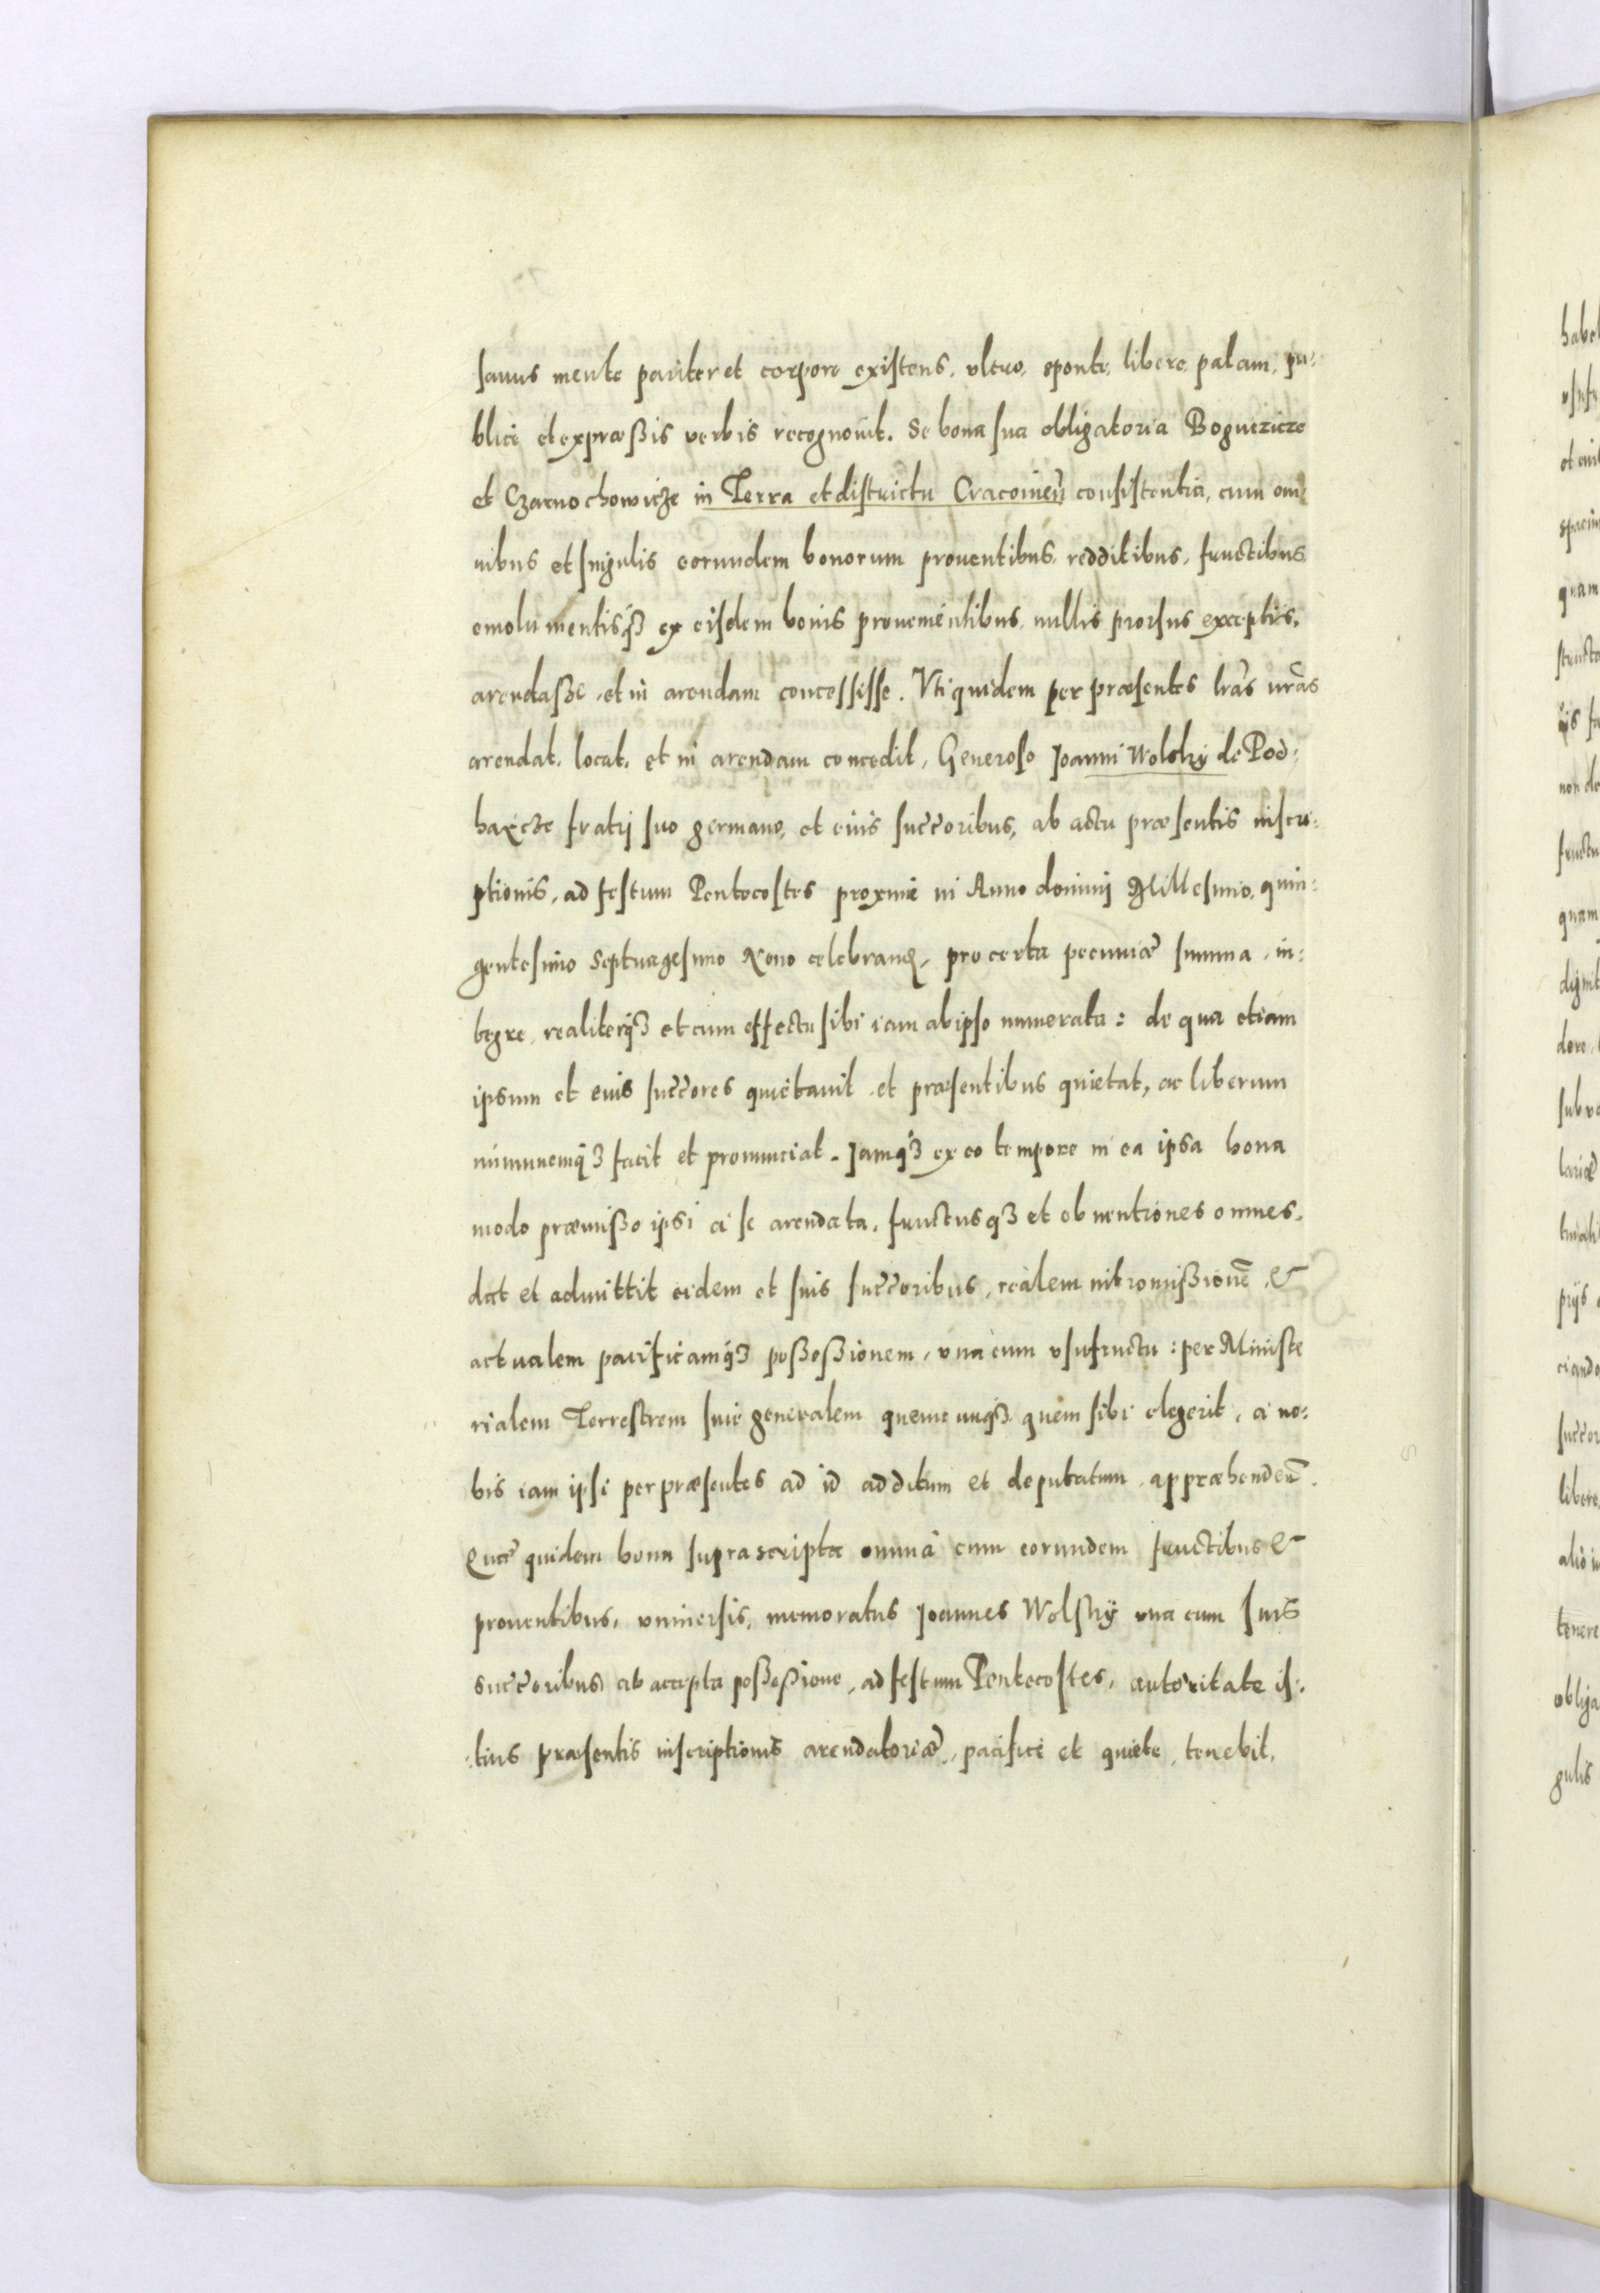 sanus mente pariter et corpore existens, vltro, sponte, libere, palam, pu:
blice et expræssis verbis recognouit. Se bona sua obligatoria Bogucicze
et Czarnochowicze in Terra et districtu Cracouien̄ consistentia, cum om
nibus et singulis eorundem bonorum prouentibus, redditibus, fructibus
emolumentisqȝ ex eisdem bonis prouenientibus, nullis prorsus exceptis,
arendasse, et in arendam concessisse. Vti quidem per præsentes lr̄as nr̄as
arendat, locat, et in arendam concedit, Generoso Joanni Wolsky de Pod:
haycze fratrj suo germano, et eius succ̄oribus, ab actu præsentis inscri:
ptionis, ad festum Pentecostes proxime in Anno dominj Millesimo, quin:
gentesimo Septuagesimo Nono celebrand̄, pro certa pecuniæ summa, in:
tegre, realiterqȝ et cum effectu sibi iam ab ipso numerata: de qua etiam
ipsum et eius succ̄ores quietauit et præsentibus quietat, ac liberum
immunemqȝ facit et pronunciat. Jamqȝ ex eo tempore in ea ipsa bona
modo præmisso ipsi a se arendata, fructusqȝ et obuentiones omnes,
dat et admittit eidem et suis succ̄oribus, realem intromissionē, &
actualem pacificamqȝ possessionem, vna cum vsufructu: per Ministe
rialem Terrestrem siue generalem quemcunqȝ quem sibi elegerit, a no:
bis iam ipsi per præsentes ad id additum et deputatum, appræhenden̄.
Quæ quidem bona suprascripta omnia cum eorundem fructibus &
prouentibus, vniuersis, memoratus Joannes Wolsky vna cum suis
succ̄oribus ab accepta possessione, ad festum Pentecostes, autoritate is:
:tius præsentis inscriptionis arendatoriæ, pacifice et quiete, tenebit,